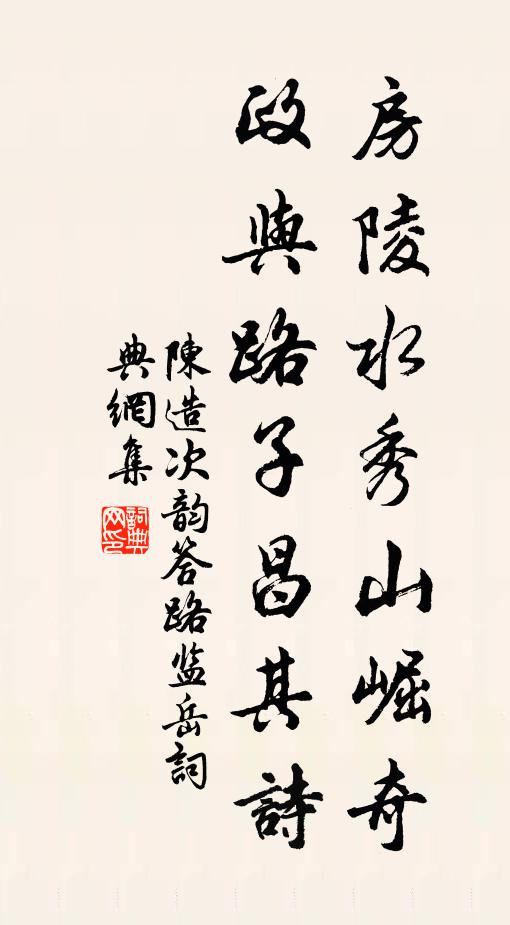 房陵水秀山崛奇
政與路子昌其詩
陳造次韵答路监岳詞
典網集
詞典网印